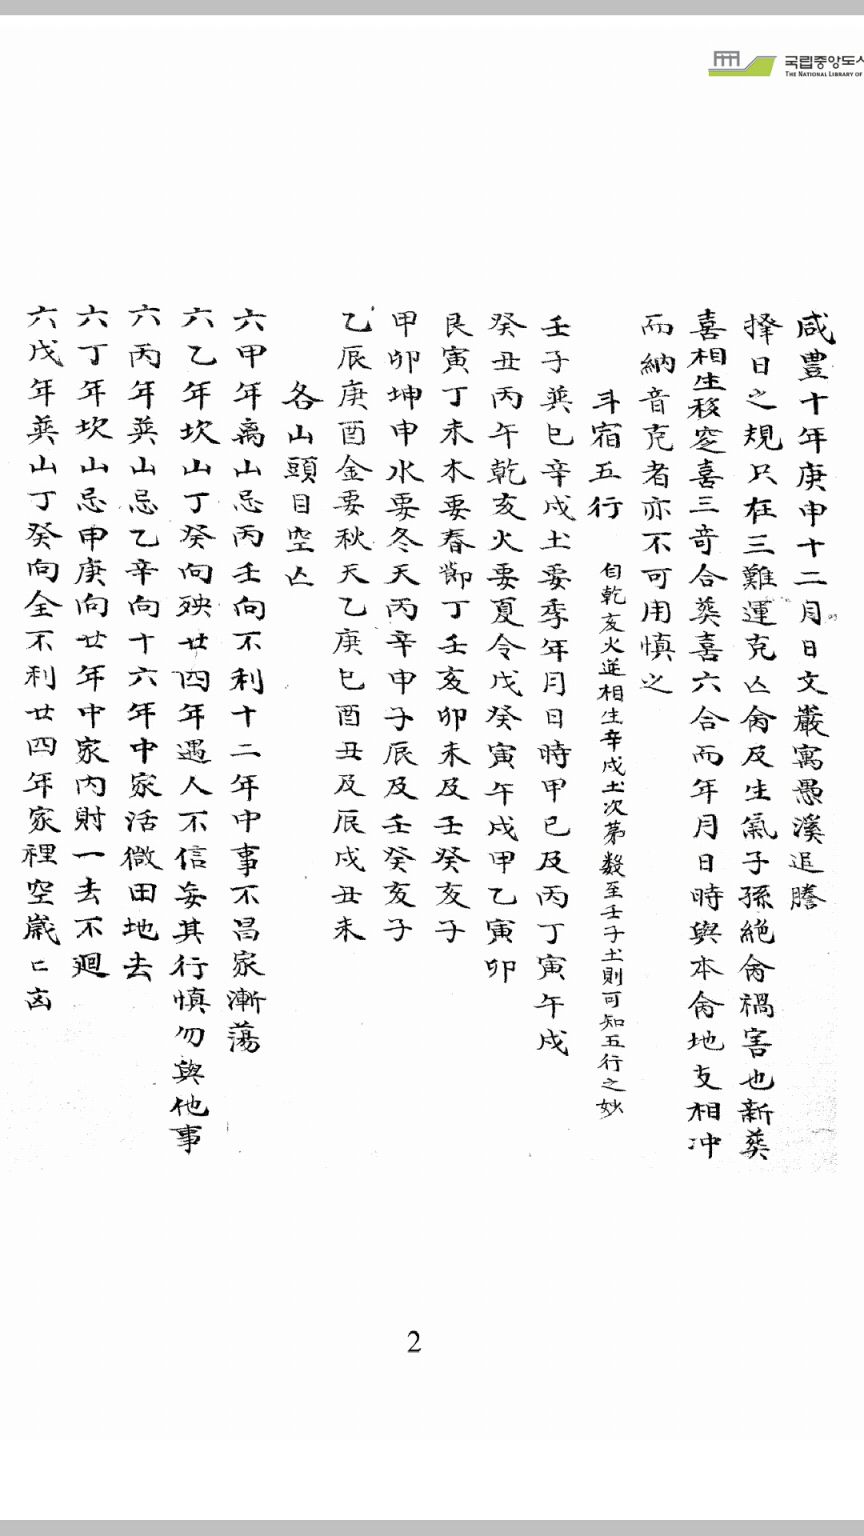 국립중앙도서
THE NATIONAL LIBRARY OF
咸豊十年庚申十二月日文巖寓愚溪追謄
擇日之規只在三難運克亾命及生氣子孫絶命禍害也新葬
喜相生移窆喜三竒合葬喜六合而年月日時與本命地支相冲
而納音克者亦不可用慎之
斗宿五行 自乾亥火逆相生辛戌土次第数至壬子土則可知五行之妙
壬子巽巳辛戌土要季年月日時甲已及丙丁寅午戌
癸丑丙午乾亥火要夏令戊癸寅午戌甲乙寅卯
艮寅丁未木要春節丁壬亥卯未及壬癸亥子
甲卯坤申水要冬天丙辛申子辰及壬癸亥子
乙辰庚酉金要秋天乙庚巳酉丑及辰戌丑未
各山頭目空亾
六甲年离山忌丙壬向不利十二年中事不昌家漸蕩
六乙年坎山丁癸向殃廿四年遇人不信妄其行慎勿與他事
六丙年巽山忌乙辛向十六年中家活微田地去
六丁年坎山忌甲庚向廿年中家內財一去不廻
六戊年巽山丁癸向全不利廿四年家裡空歲
2